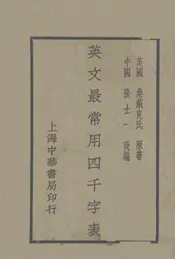 英國 桑戴克氏 原著
中國 張士一 改編
英文最常用四千字表
上海中華書局印行